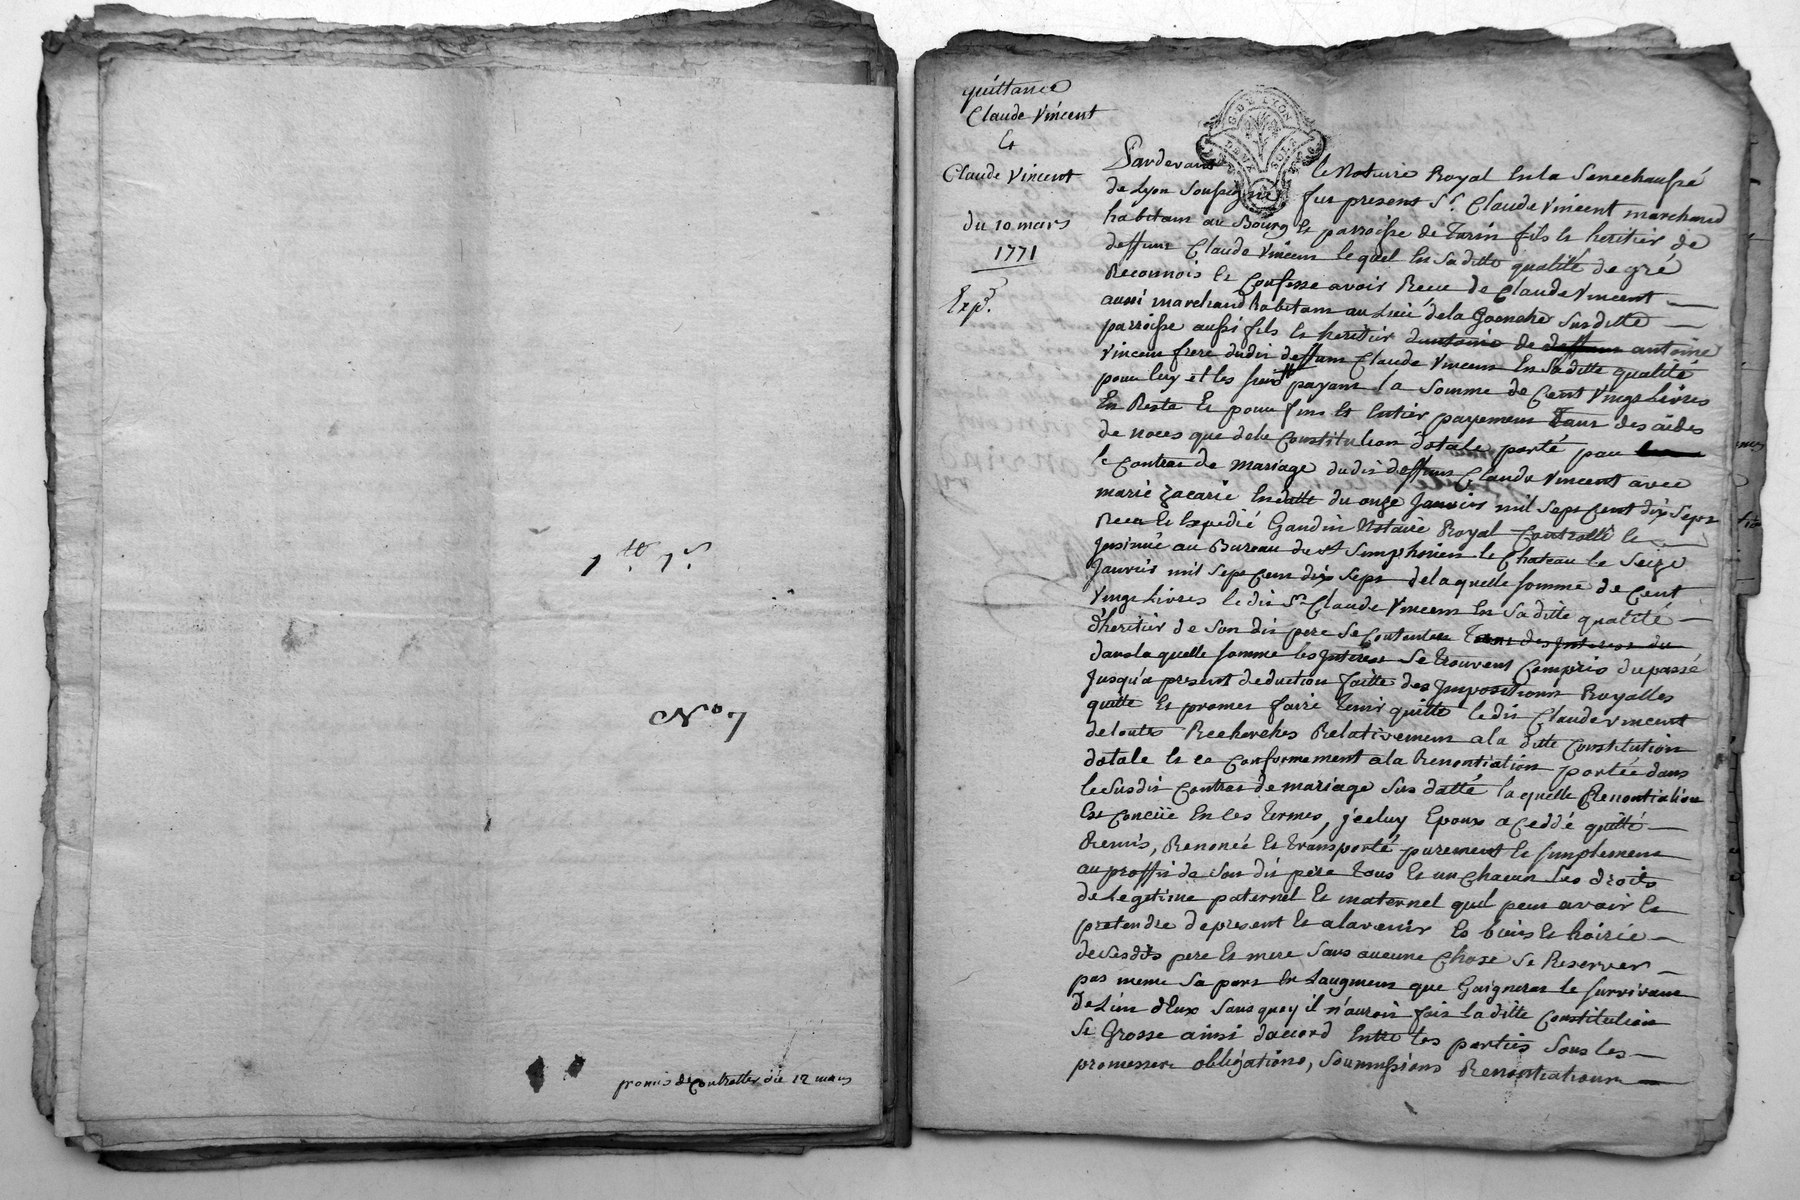 1.re 7.s
No 7
promis de controller die 12 mars
quittance
Claude Vincent
Et
Claude Vincent
du 10 mars
1771
Exp.
G. DE LYON
DEUX SOLS
Pardevant le Notaire Royal En la Senechaussé
de Lyon soussigné fut present Sr. Claude Vincent marchand
habitant au Bourg Et parroisse de fils Et heritier de
deffunt Claude Vincent lequel En sa ditte qualité de gré
Reconnois Et Confesse avoir Receu de Claude Vincent
aussi marchand habitant au Lieu de la susditte
parroisse aussi fils Et heritier d'antoine de deffunt antoine
Vincent frere dudit deffunt Claude Vincent En sa ditte qualité
pour luy et les siens payant la somme de Cent Vingt Livres
En Reste Et pour fins Et Entier payement tant des aides
de noces que de la Constitution dotale porté par
le Contrat de mariage dudit deffunt Claude Vincent avec
marie Zacarie En datte du onze Janvier mil sept cent dix sept
Receu Et Expedié Gandin Notaire Royal Controllé Et
Jnsinué au Bureau de St Simphorien le Chateau le Seize
Janvier mil sept cent dix sept de laquelle somme de Cent
Vingt Livres ledit Sr Claude Vincent En sa ditte qualité
d'heritier de son dit pere se Contentere tant des Jnterest du
dans la quelle somme les Jnterest se trouvent Compris du passé
Jusqu'a present deduction faitte des Jmpositions Royalles
quitte Et promet faire tenir quitte ledit Claude vincent
de toutes Recherches Relativement a la ditte Constitution
dotale Et ce Conformement a la Renontiation portée dans
le susdit Contrat de mariage sus datté la quelle Renontiation
Est Conçüe En ces termes, jceluy Epoux a Ceddé quitté
Remis, Renoncé Et transporté purement Et simplement
au proffit de son dit pere tous Et un chacun ses droits
de Legitime paternel Et maternel quil peut avoir Et
pretendre de present Et alavenir Es biens Et hoirie
de sesdits pere Et mere sans aucune Chose se Reserver
pas meme sa part En Laugment que Gaignerat le survivant
de L'un d'Eux sans quoy il n'auroit fait la ditte Constitution
si Grosse ainsi d'accord Entre les parties sous les
promesses obligations, soumissions Renontiations